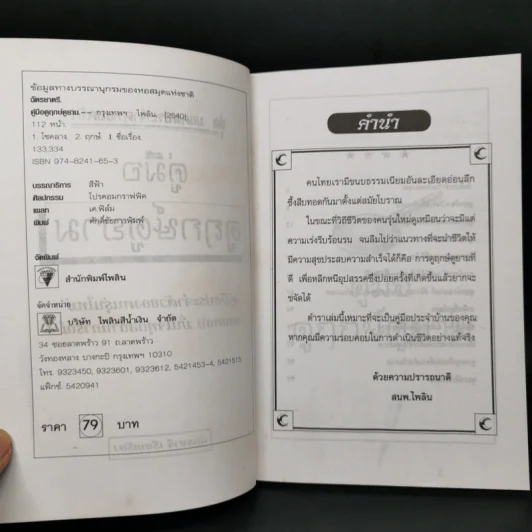 ข้อมูลทางบรรณานุกรมของหอสมุดแห่งชาติ
ฉัตรชาตรี.
คู่มือดูฤกษ์ดูยาม.-- กรุงเทพฯ : ไพลิน, [2540].
112 หน้า.
1. โชคลาง. 2. ฤกษ์. I ชื่อเรื่อง.
133.334
ISBN 974-8241-65-3
บรรณาธิการ สีฟ้า
ศิลปกรรม โปรคอมกราฟฟิค
เพลท เค.ฟิล์ม
พิมพ์ ศักดิ์ชัยการพิมพ์
จัดพิมพ์
สำนักพิมพ์ไพลิน
จัดจำหน่าย
บริษัท ไพลินสีน้ำเงิน จำกัด
34 ซอยลาดพร้าว 91 ถ.ลาดพร้าว
วังทองหลาง บางกะปิ กรุงเทพฯ 10310
โทร. 9323450, 9323601, 9323612, 5421453-4, 5421515
แฟ็กซ์. 5420941
ราคา 79 บาท
คำนำ
คนไทยเรามีขนบธรรมเนียมอันละเอียดอ่อนลึก
ซึ้งสืบทอดกันมาตั้งแต่สมัยโบราณ
ในขณะที่วิถีชีวิตของคนรุ่นใหม่ดูเหมือนว่าจะมีแต่
ความเร่งรีบร้อนรน จนลืมไปว่าแนวทางที่จะนำชีวิตให้
มีความสุขประสบความสำเร็จได้ก็คือ การดูฤกษ์ดูยามที่
ดี เพื่อหลีกหนีอุปสรรคซึ่งบ่อยครั้งที่เกิดขึ้นแล้วยากจะ
ขจัดได้
ตำราเล่มนี้เหมาะที่จะเป็นคู่มือประจำบ้านของคุณ
หากคุณมีความรอบคอบในการดำเนินชีวิตอย่างแท้จริง
ด้วยความปรารถนาดี
สนพ.ไพลิน